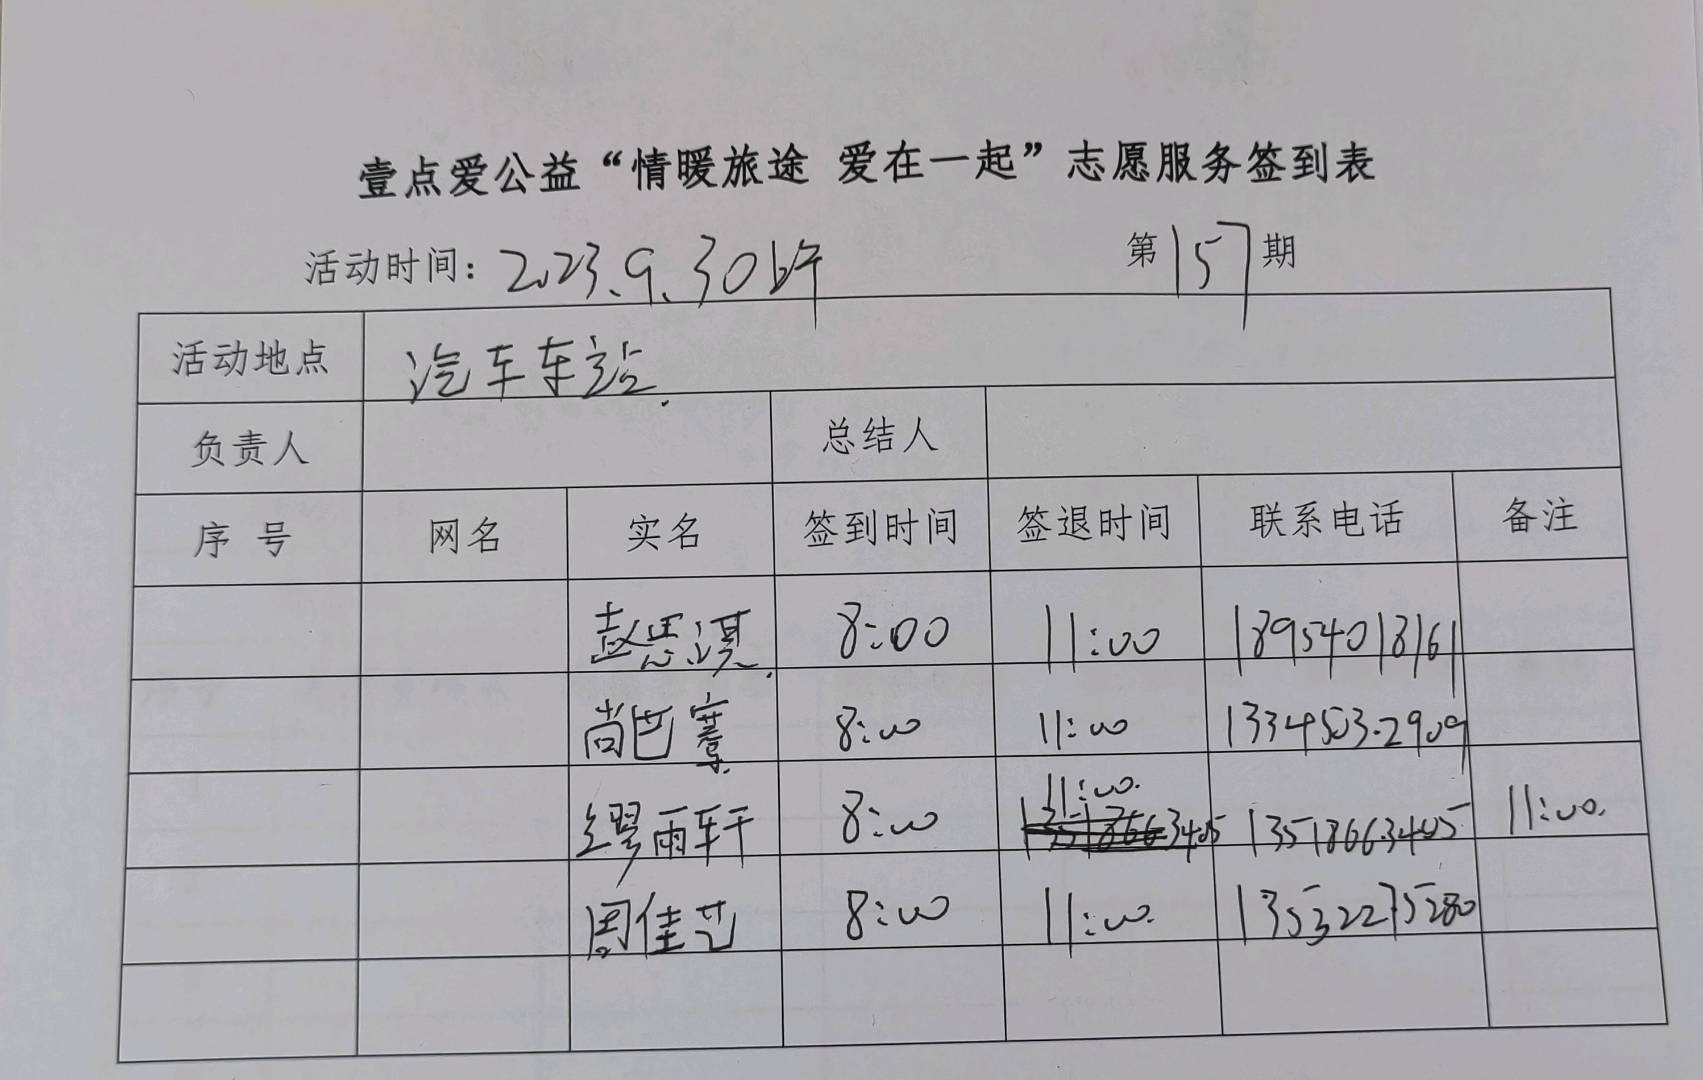 壹点爱公益“情暖旅途 爱在一起”志愿服务签到表
活动时间：2023.9.30上午 第157期
活动地点 汽车车站
负责人 总结人
序号 网名 实名 签到时间 签退时间 联系电话 备注
赵思淇 8:00 11:00 18954018161
尚芭 8:00 11:00 13345032909
11:00.
缪雨轩 8:00 13518663405 11:00.
周佳艺 8:00 11:00. 13532275280